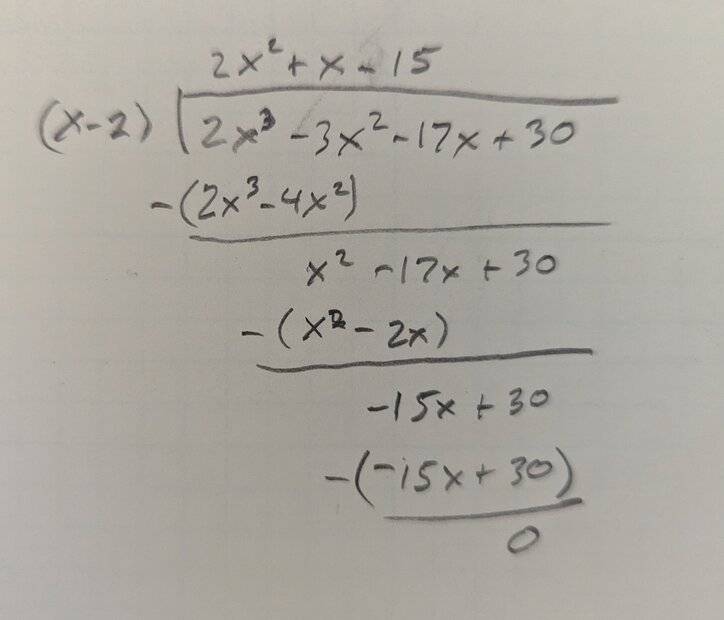 2x² + x - 15
(x-2) 2x³ - 3x² - 17x + 30
-(2x³ - 4x²)
x² - 17x + 30
-(x² - 2x)
-15x + 30
-(-15x + 30)
0